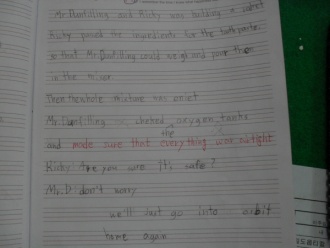 Mr. Dordilling and Ricky was building a rocket
Ricky passed the ingredients for the toothpaste,
so that Mr. Dordilling could weigh and pour them
in the mixer.
Then the whole mixture was
Mr. Dordilling checked oxygen tanks
the
and made sure that everything was airtight
Ricky: Are you sure it's safe?
Mr.D: don't worry
we'll just go into orbit
home again